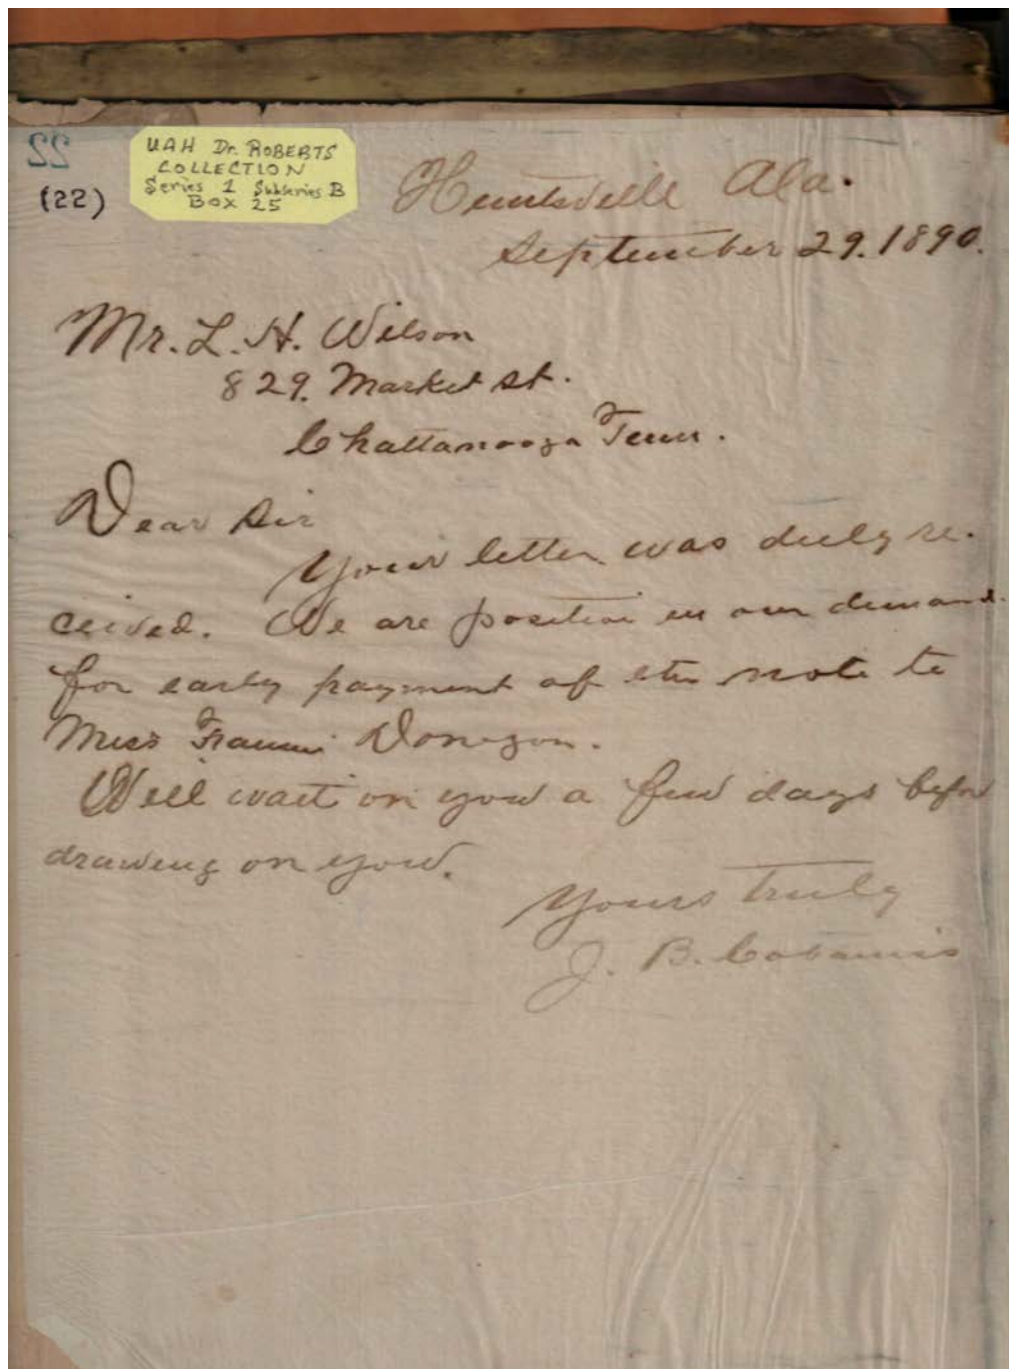 22
(22)
UAH Dr. ROBERTS
COLLECTION
Series 1 Subseries B
BOX 25
Huntsville Ala.
September 29. 1890.
Mr. L. H. Wilson
829. Market St.
Chattanooga Tenn.
Dear Sir
Your letter was duly re-
ceived. We are positive in our demand
for early payment of the note to
Miss Fannie Donegan.
Will wait on you a few days before
drawing on you.
Yours truly
J. B. Cabaniss